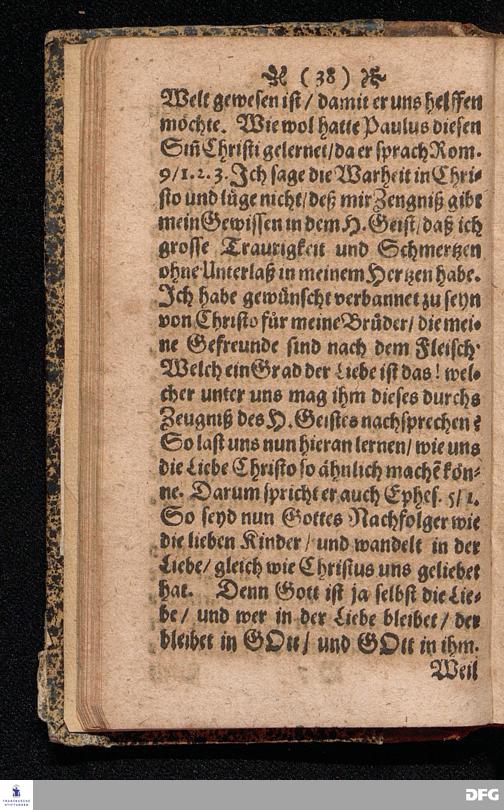 (38)
Welt gewesen ist / damit er uns helffen
möchte. Wie wol hatte Paulus diesen
Siñ Christi gelernet / da er sprach Rom.
9/1.2.3. Ich sage die Warheit in Chri-
sto und lüge nicht / deß mir Zeugniß gibt
mein Gewissen in dem H. Geist / daß ich
grosse Traurigkeit und Schmertzen
ohne Unterlaß in meinem Hertzen habe.
Ich habe gewünscht verbannet zu seyn
von Christo für meine Brüder / die mei-
ne Gefreunde sind nach dem Fleisch.
Welch ein Grad der Liebe ist das! wel-
cher unter uns mag ihm dieses durchs
Zeugniß des H. Geistes nachsprechen?
So last uns nun hieran lernen / wie uns
die Liebe Christo so ähnlich machē kön-
ne. Darum spricht er auch Ephes. 5/1.
So seyd nun Gottes Nachfolger wie
die lieben Kinder / und wandelt in der
Liebe / gleich wie Christus uns geliebet
hat. Denn Gott ist ja selbst die Lie-
be / und wer in der Liebe bleibet / der
bleibet in GOtt / und GOtt in ihm.
Weil
FRANCKESCHE
STIFTUNGEN
DFG